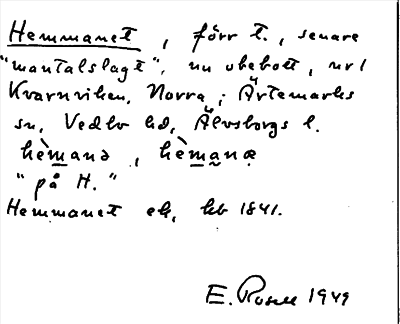 Hemmanet, förr t., senare
"mantalslagt", nu obebott, u/
Kvarnviken, Norra, i Ärtemarks
sn, Vedbo hd, Älvsborgs l.
hèmanə, hèmanæ
"på H."
Hemmanet ek, kb 1841.
E. Rosell 1949